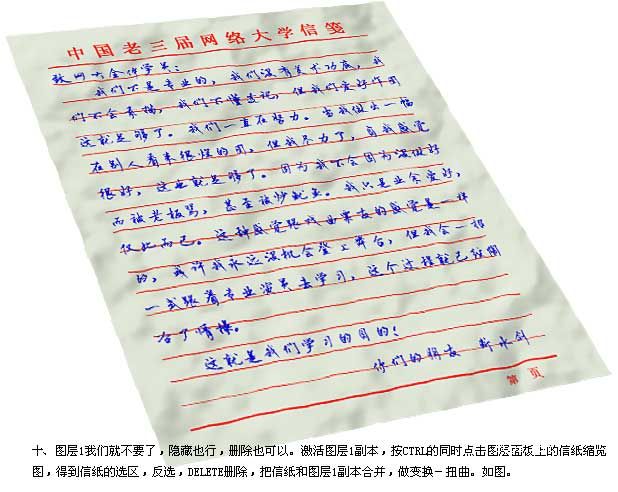 中国老三届网络大学信笺
致网大全体学员：
我们不是专业的，我们没有美术功底，我
们不会素描，我们不懂速记，但我们爱好作图
这就足够了。我们一直在努力。当我做出一幅
在别人看来很烂的图，但我尽力了，自我感觉
很好，这也就足够了。因为我不会因为没做好
而被老板骂，甚至被炒鱿鱼。我只是业余爱好，
仅此而已。这种感觉跟戏曲票友的感觉是一样
的，或许我永远没机会登上舞台，但我会一招
一式跟着专业演员去学习，这个过程就已经陶
合了情操。
这就是我们学习的目的！
你们的朋友 新水剑
第 页
十、图层1我们就不要了，隐藏也行，删除也可以。激活图层1副本，按CTRL的同时点击图层面板上的信纸缩览
图，得到信纸的选区，反选，DELETE删除，把信纸和图层1副本合并，做变换－扭曲。如图。